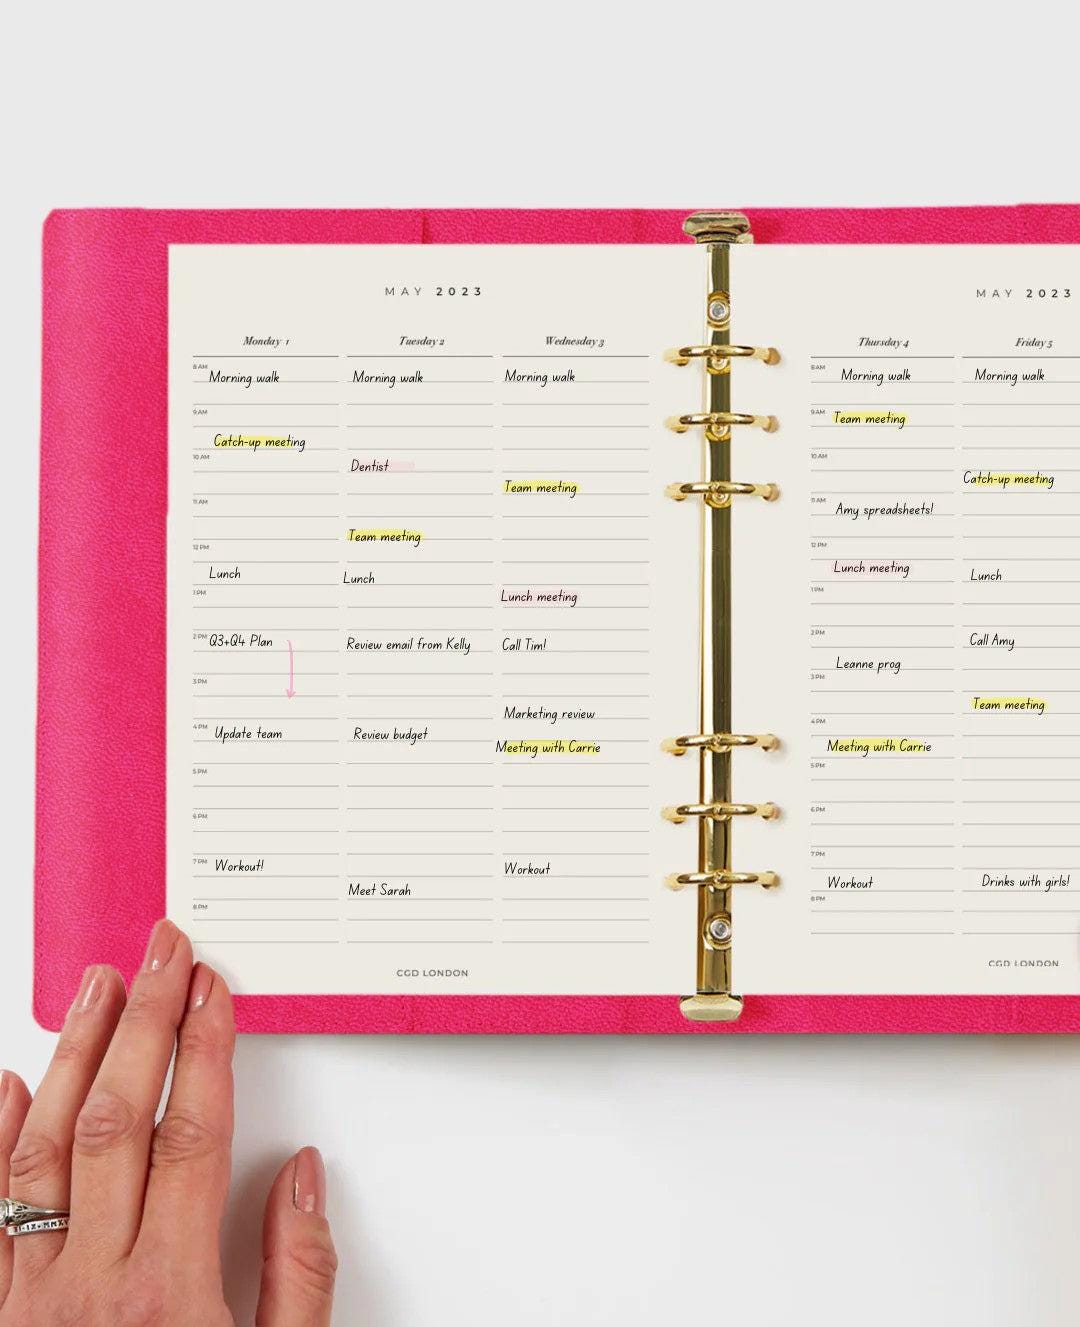 MAY 2023
Monday 1
8 AM
Morning walk
9 AM
Catch-up meeting
10 AM
11 AM
12 PM
Lunch
1 PM
2 PM
Q3+Q4 Plan
3 PM
4 PM
Update team
5 PM
6 PM
7 PM
Workout!
8 PM
Tuesday 2
Morning walk
Dentist
Team meeting
Lunch
Review email from Kelly
Review budget
Meet Sarah
Wednesday 3
Morning walk
Team meeting
Lunch meeting
Call Tim!
Marketing review
Meeting with Carrie
Workout
CGD LONDON
MAY 2023
Thursday 4
8 AM
Morning walk
9 AM
Team meeting
10 AM
11 AM
Amy spreadsheets!
12 PM
Lunch meeting
1 PM
2 PM
Leanne prog
3 PM
4 PM
Meeting with Carrie
5 PM
6 PM
7 PM
Workout
8 PM
Friday 5
Morning walk
Catch-up meeting
Lunch
Call Amy
Team meeting
Drinks with girls!
CGD LONDON